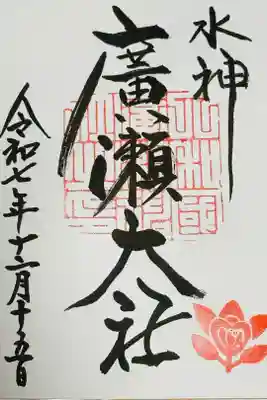 水神
廣瀬大社
令和七年十二月十五日